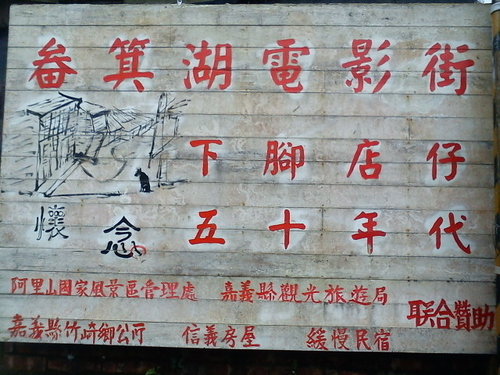 畚箕湖電影街
下腳店仔
懷念五十年代
阿里山國家風景區管理處 嘉義縣觀光旅遊局
嘉義縣竹崎鄉公所 信義房屋 緩慢民宿
聯合贊助